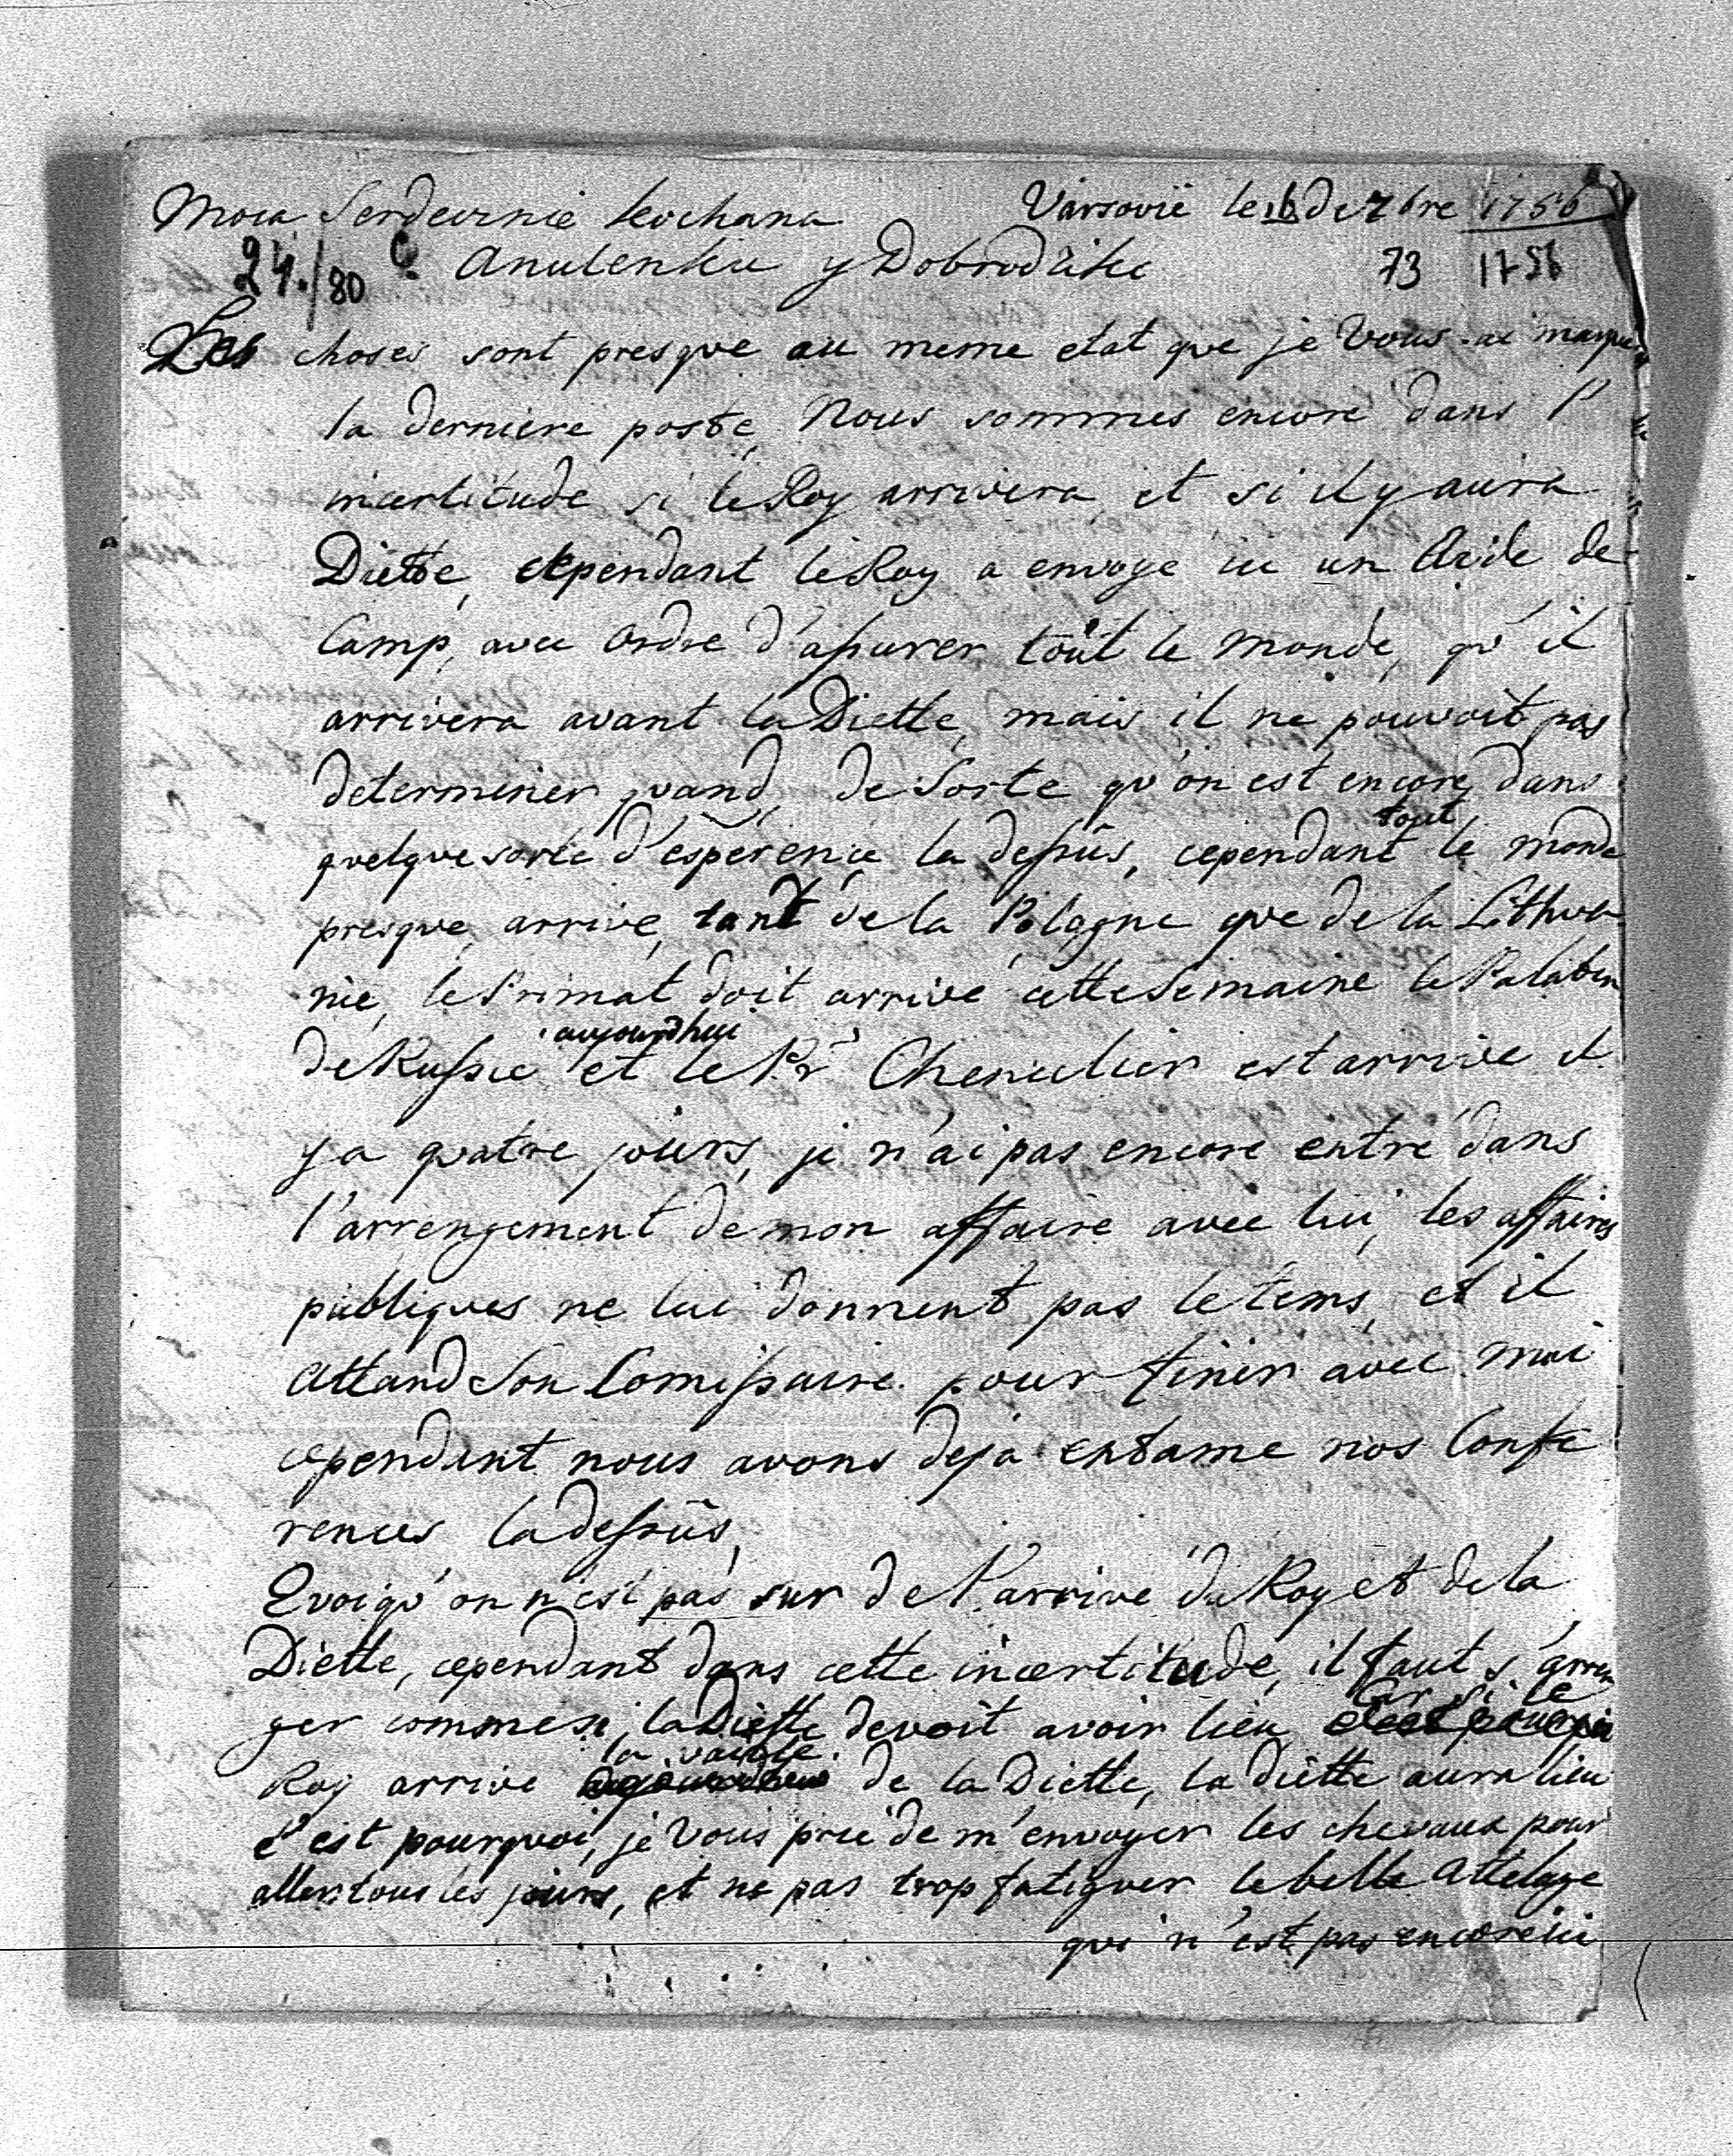 Moia Serdecznie kochana Varsovie le 16 de 7bre 1756
24./80 C. Anulenku y Dobrodziko 73 1756
Les choses sont presque au meme etat que je Vous ai marqué
la derniere poste, Nous sommes encore dans l'
incertitude si le Roy arrivera et si il y aura
Diette, cependant le Roy a envoye ici un Aide de
Camp, avec Ordre d'assurer tout le monde, qu'il
arrivera avant la Diette, mais il ne pouvoit pas
determiner quand, de Sorte qu'on est encore dans
quelque sorte d'espérence la dessus, cependant tout le monde
presque arrive, tant de la Pologne que de la Lithua
nie, le Primat doit arrivé cette Semaine le Palatin
de Russie aujourdhui et le Pr Chencelier est arrivé il
y a quatre jours, je n'ai pas encore entré dans
l'arrengement de mon affaire avec lui, les affaires
publiques ne lui donnent pas le tems, et il
attand Son Comissaire pour finir avec moi
cependant nous avons deja entame nos Confe
rences la dessus,
Quoiqu'on n'est pas sur de l'arrivé du Roy et de la
Diette, cependant dans cette incertitude, il faut s'arren
ger comme si la Diette devoit avoir lieu Car si le
Roy arrive la vaille de la Diette, la diette aura lieu
c'est pourquoi, je Vous prie de m'envoyer les chevaux pour
aller tous les jours, et ne pas trop fatiguer le belle Attelage
qui n'est pas encore ici